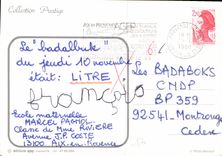 Collection Prestige
Le "badalbuk"
du jeudi 10 novembre
était: LITRE
françois
Ecole maternelle
MARCEL PAGNOL
Classe de Mme RIVIÈRE
Avenue J.P. COSTE
13100 AIX-en-Provence
Les BADABOKS
CNDP
BP 359
92541-Montrouge
Cedex